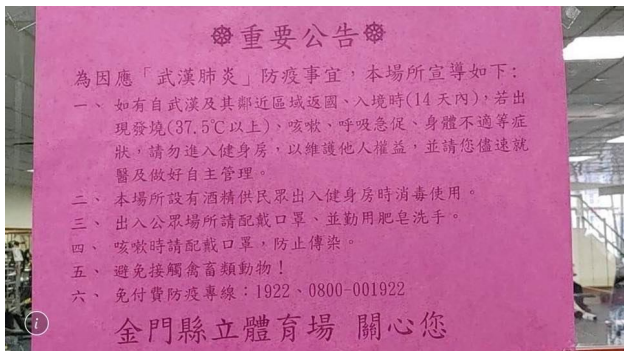 ☸重要公告☸
為因應「武漢肺炎」防疫事宜，本場所宣導如下：
一、如有自武漢及其鄰近區域返國、入境時(14天內)，若出
現發燒(37.5℃以上)、咳嗽、呼吸急促、身體不適等症
狀，請勿進入健身房，以維護他人權益，並請您儘速就
醫及做好自主管理。
二、本場所設有酒精供民眾出入健身房時消毒使用。
三、出入公眾場所請配戴口罩、並勤用肥皂洗手。
四、咳嗽時請配戴口罩，防止傳染。
五、避免接觸禽畜類動物！
六、免付費防疫專線：1922、0800-001922
金門縣立體育場 關心您
i